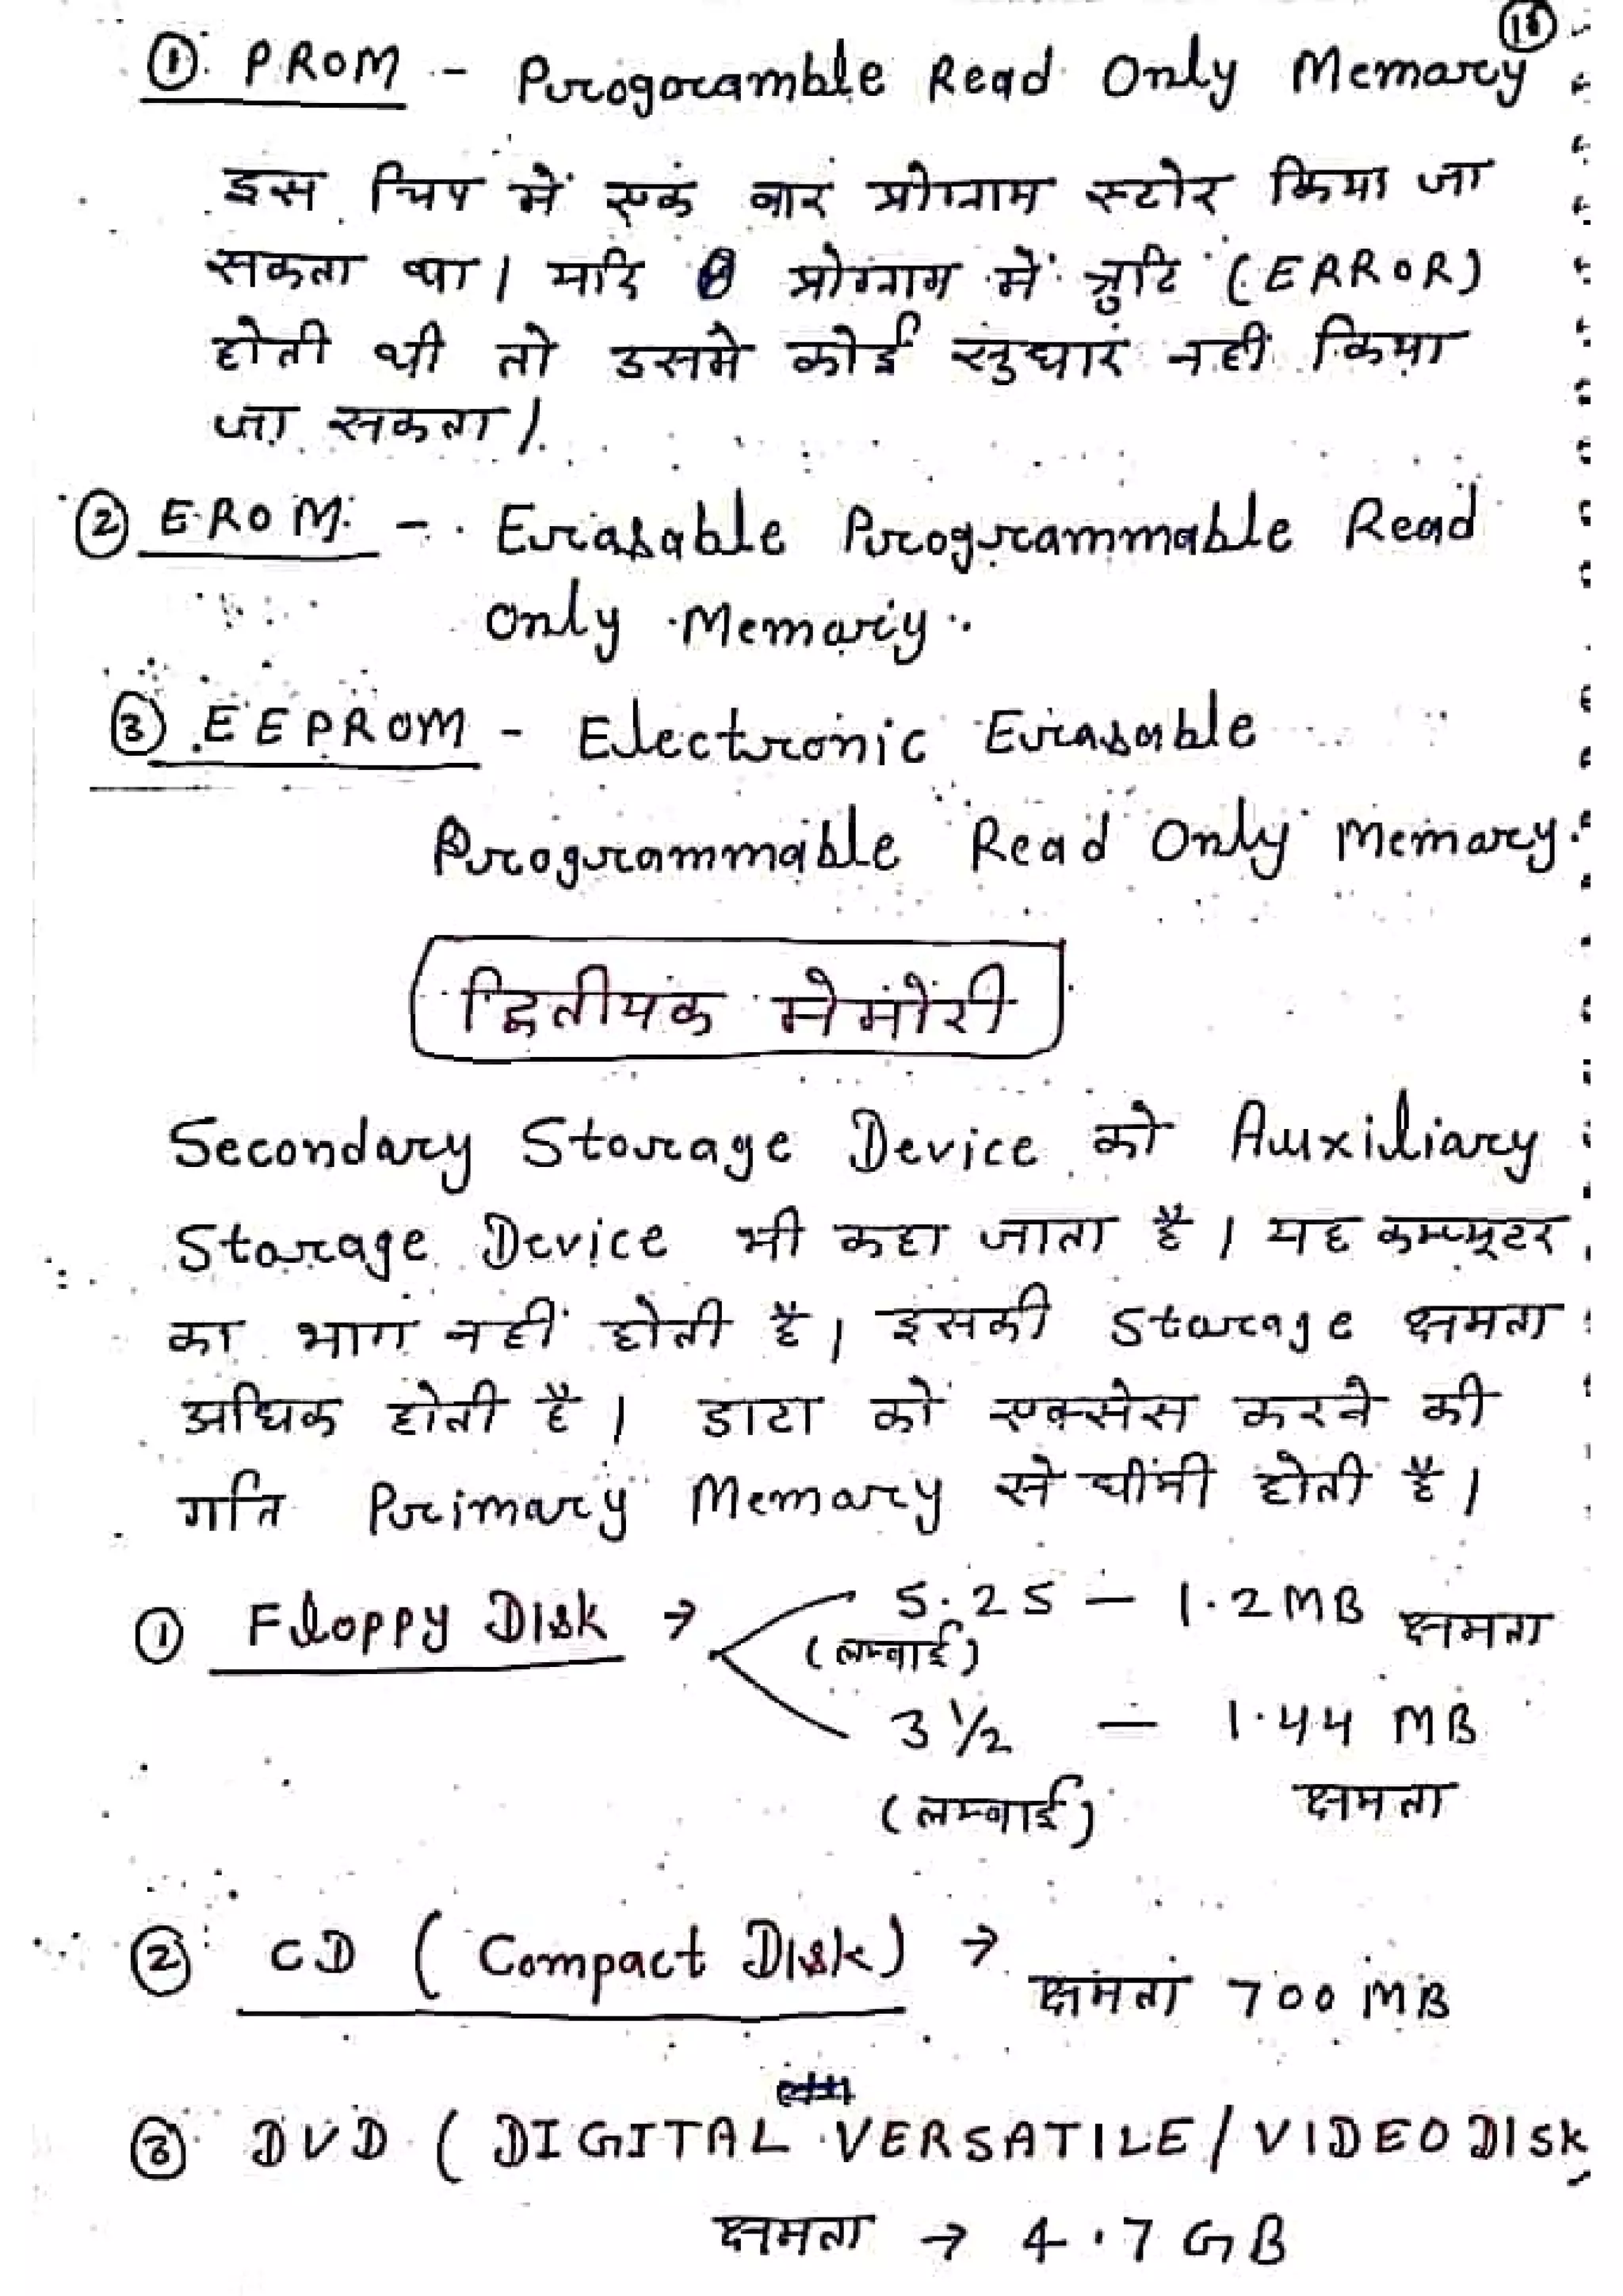 16
① PROM - Programble Read Only Memary
इस चिप में एक बार प्रोग्राम स्टोर किया जा
सकता था। यदि प्रोग्राम में त्रुटि (ERROR)
होती थी तो उसमे कोई सुधार नहीं किया
जा सकता।
② EROM - Erasable Programmable Read
Only Memary
③ EEPROM - Electronic Erasable
Programmable Read Only Memary.
द्वितीयक मेमोरी
Secondary Storage Device को Auxiliary
Storage Device भी कहा जाता है। यह कम्प्यूटर
का भाग नहीं होती है। इसकी Storage क्षमता
अधिक होती है। डाटा को एक्सेस करने की
गति Primary Memary से धीमी होती है।
① Floppy Disk → 5.25 — 1.2 MB क्षमता
(लम्बाई)
3 ½ — 1.44 MB
(लम्बाई) क्षमता
② CD (Compact Disk) → क्षमता 700 MB
③ DVD (DIGITAL VERSATILE/VIDEO DISK
क्षमता → 4.7 GB